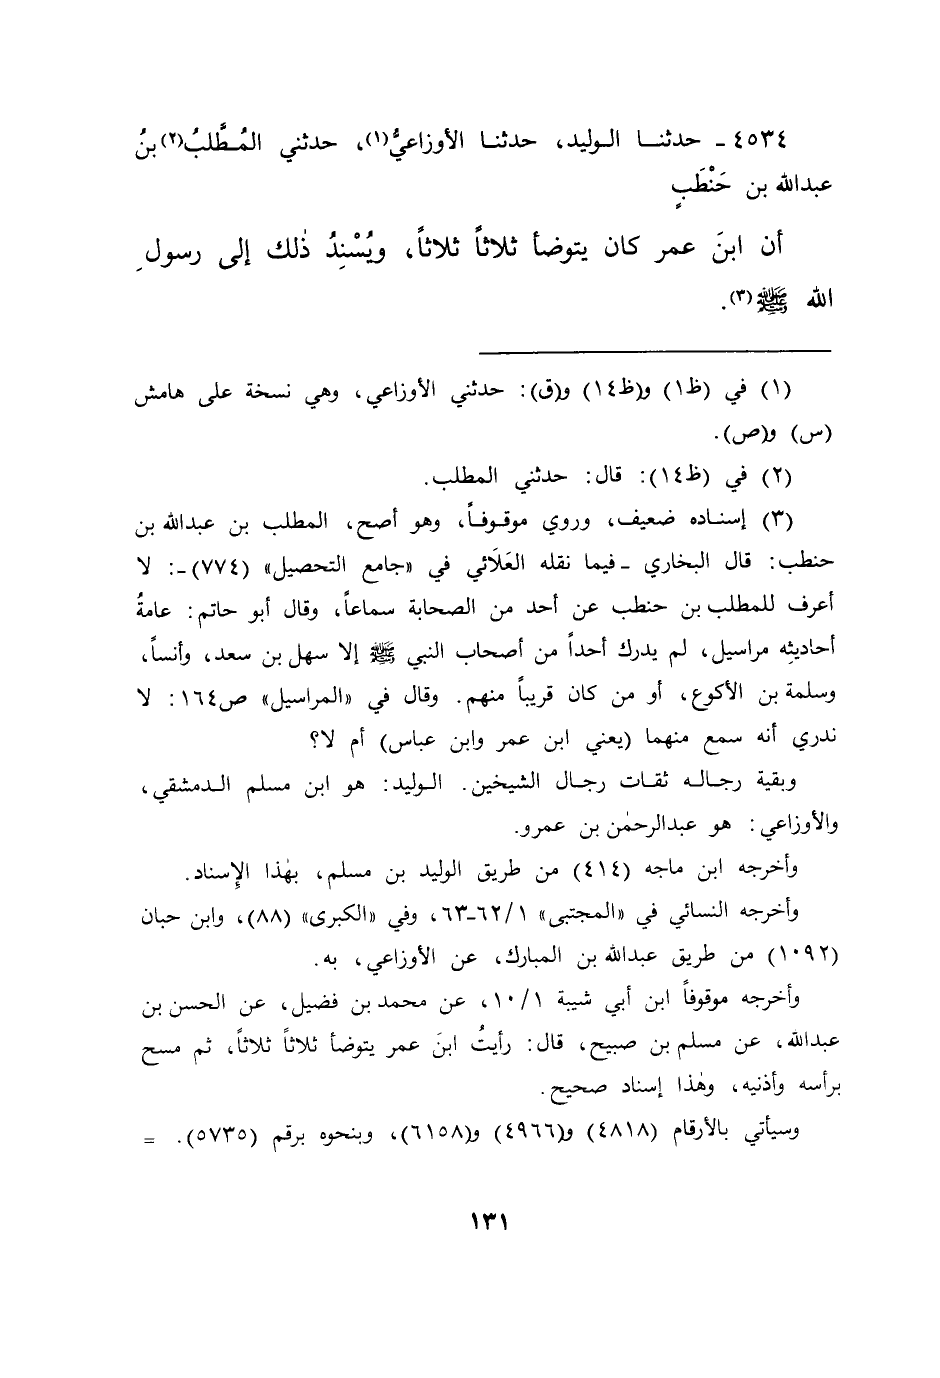 ٤٥٣٤ - حدثنا الوليد، حدثنا الأوزاعيُّ(١)، حدثني المُطَّلبُ(٢) بنُ
عبدالله بن حَنْطَبٍ
أن ابنَ عمر كان يتوضأ ثلاثاً ثلاثاً، ويُسْنِدُ ذٰلك إلى رسولِ
الله ﷺ(٣).
(١) في (ظ١) و(ظ١٤) و(ق): حدثني الأوزاعي، وهي نسخة على هامش
(س) و(ص).
(٢) في (ظ١٤): قال: حدثني المطلب.
(٣) إسناده ضعيف، وروي موقوفاً، وهو أصح، المطلب بن عبدالله بن
حنطب: قال البخاري -فيما نقله العَلَائي في «جامع التحصيل» (٧٧٤)-: لا
أعرف للمطلب بن حنطب عن أحد من الصحابة سماعاً، وقال أبو حاتم: عامةُ
أحاديثِه مراسيل، لم يدرك أحداً من أصحاب النبي ﷺ إلا سهل بن سعد، وأنساً،
وسلمة بن الأكوع، أو من كان قريباً منهم. وقال في «المراسيل» ص١٦٤: لا
ندري أنه سمع منهما (يعني ابن عمر وابن عباس) أم لا؟
وبقية رجاله ثقات رجال الشيخين. الوليد: هو ابن مسلم الدمشقي،
والأوزاعي: هو عبدالرحمٰن بن عمرو.
وأخرجه ابن ماجه (٤١٤) من طريق الوليد بن مسلم، بهٰذا الإِسناد.
وأخرجه النسائي في «المجتبى» ٦٢/١-٦٣، وفي «الكبرى» (٨٨)، وابن حبان
(١٠٩٢) من طريق عبدالله بن المبارك، عن الأوزاعي، به.
وأخرجه موقوفاً ابن أبي شيبة ١٠/١، عن محمد بن فضيل، عن الحسن بن
عبدالله، عن مسلم بن صبيح، قال: رأيتُ ابنَ عمر يتوضأ ثلاثاً ثلاثاً، ثم مسح
برأسه وأذنيه، وهٰذا إسناد صحيح.
وسيأتي بالأرقام (٤٨١٨) و(٤٩٦٦) و(٦١٥٨)، وبنحوه برقم (٥٧٣٥). =
١٣١